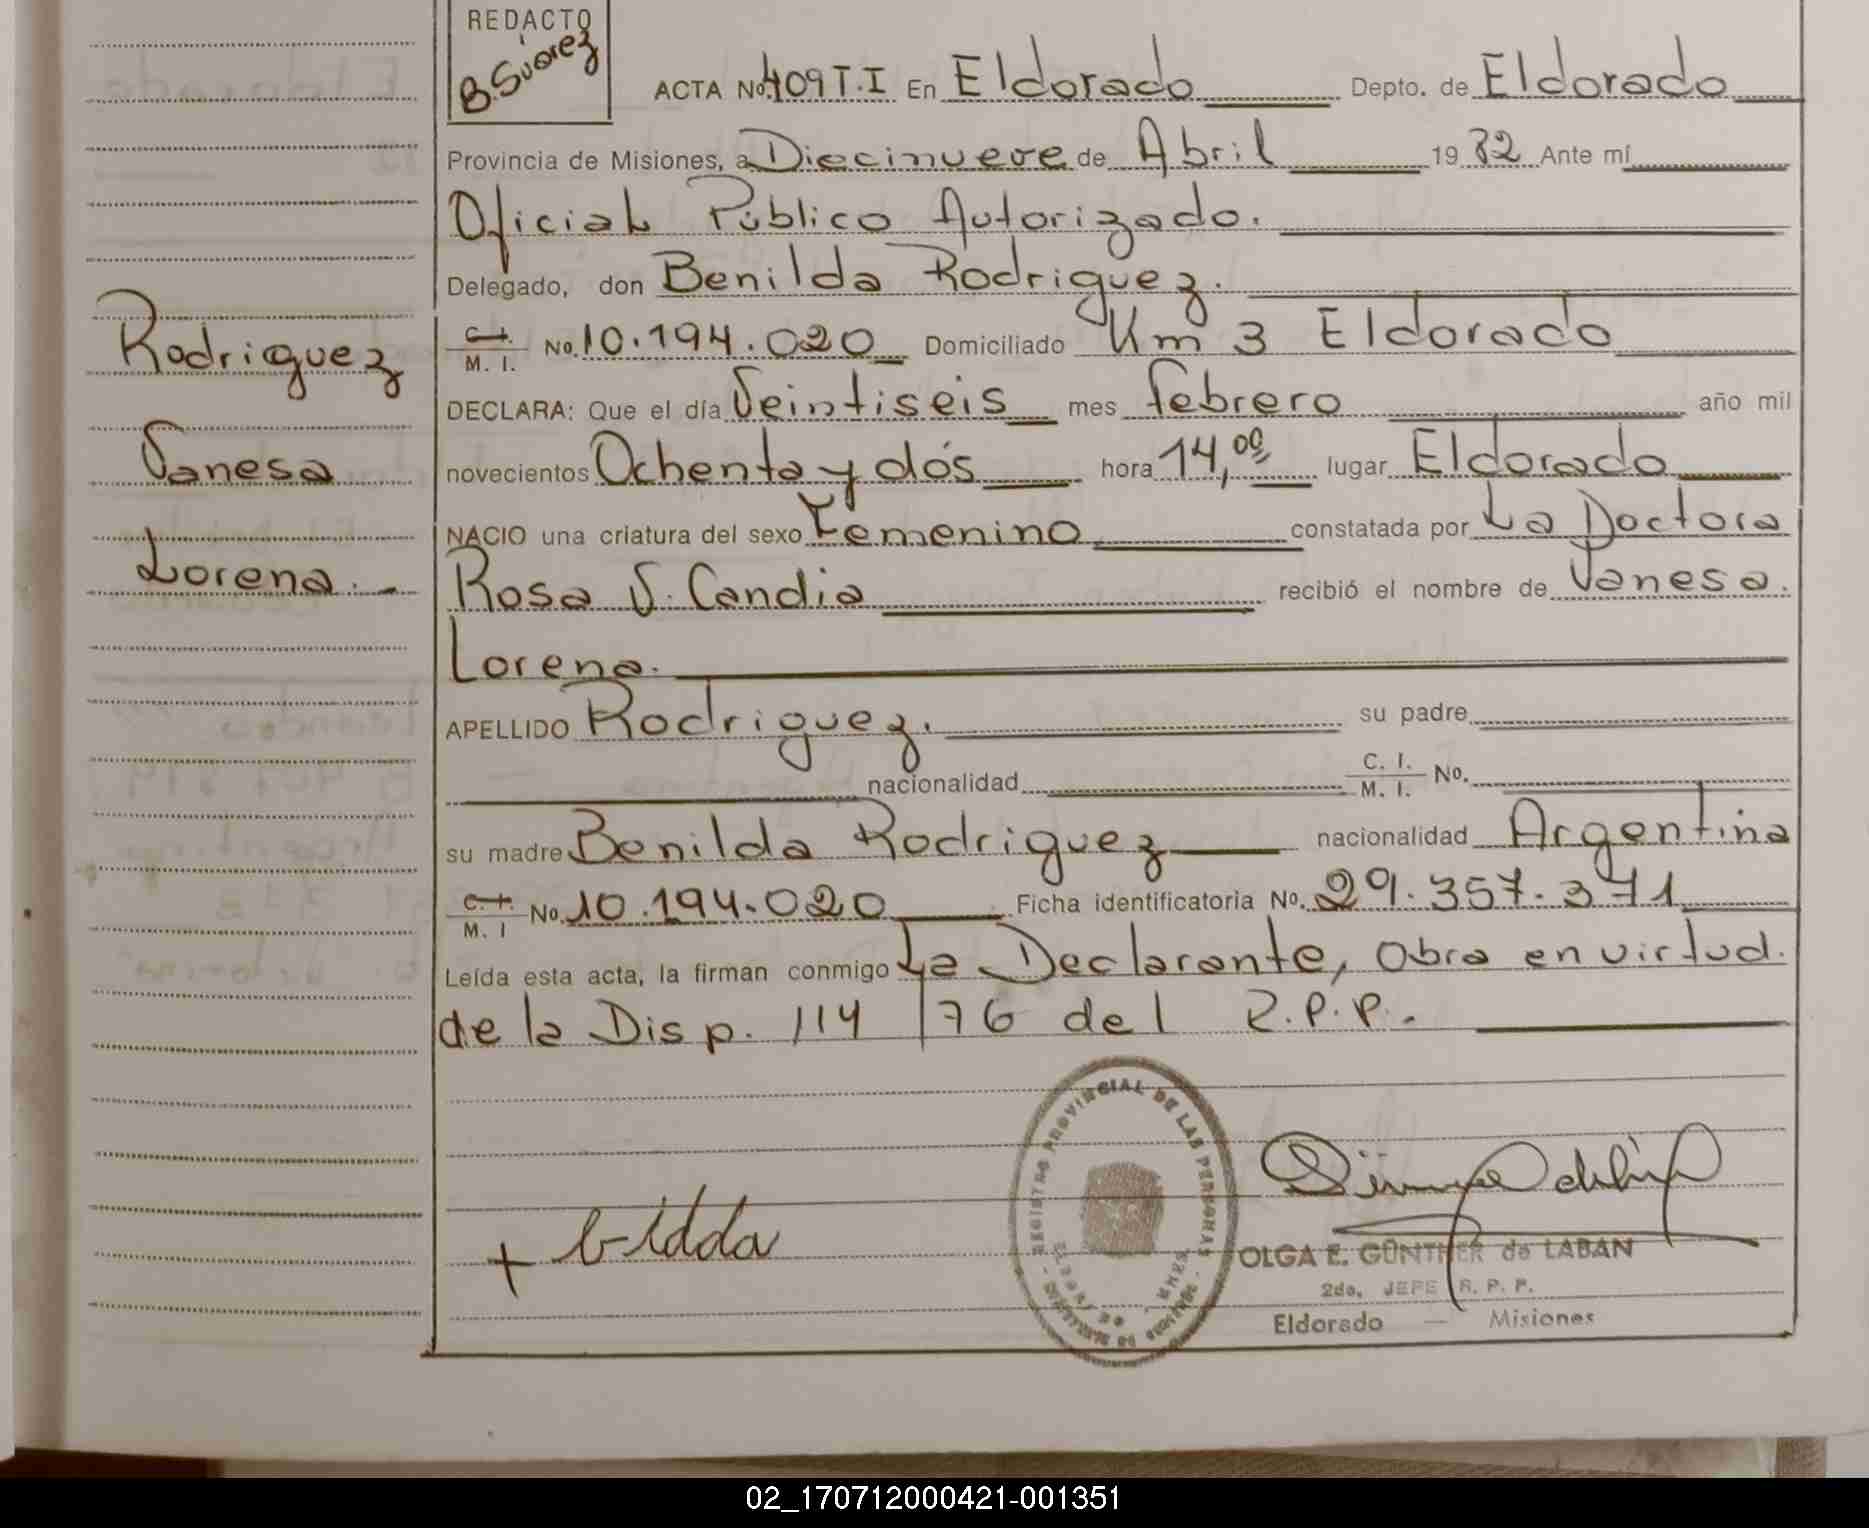 REDACTO
B. Suárez
ACTA No. 409 T.I En Eldorado Depto. de Eldorado
Provincia de Misiones, a Diecinueve de Abril 1982 Ante mí
Oficial Público Autorizado.
Delegado, don Benilda Rodriguez.
C. I. / M. I. No. 10.194.020 Domiciliado Km 3 Eldorado
DECLARA: Que el día Veintiseis mes febrero año mil
novecientos Ochenta y dós hora 14,00 lugar Eldorado
NACIO una criatura del sexo Femenino constatada por La Doctora
Rosa V. Candia recibió el nombre de Vanesa.
Lorena.
APELLIDO Rodriguez. su padre
nacionalidad C. I. / M. I. No.
su madre Benilda Rodriguez nacionalidad Argentina
C. I. / M. I No. 10.194.020 Ficha identificatoria No. 29.357.371
Leída esta acta, la firman conmigo La Declarante, Obra en virtud.
de la Disp. 114/76 del R.P.P.
Rodriguez
Vanesa
Lorena.
REGISTRO PROVINCIAL DE LAS PERSONAS
OLGA E. GÜNTHER de LABAN
2do. JEFE R. P. P.
Eldorado — Misiones
02_170712000421-001351